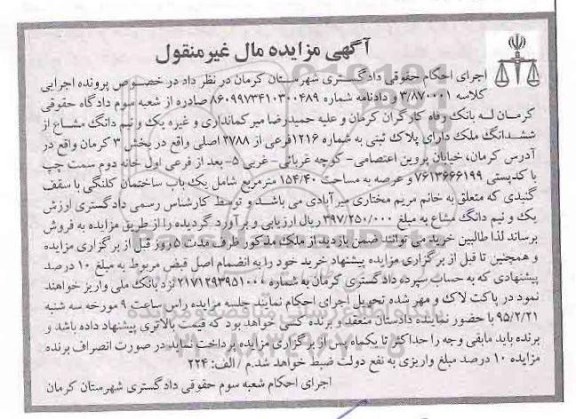 آگهی مزایده مال غیرمنقول
اجرای احکام حقوقی دادگستری شهرستان کرمان در نظر داد در خصوص پرونده اجرایی
کلاسه ۳/۸۷۰۰۰۱ و دادنامه شماره ۸۶۰۹۹۷۳۴۱۰۳۰۰۴۸۹ صادره از شعبه سوم دادگاه حقوقی
کرمان له بانک رفاه کارگران کرمان و علیه حمیدرضا میرکمانداری و غیره یک و نیم دانگ مشاع از
ششدانگ ملک دارای پلاک ثبتی به شماره ۱۲۱۶فرعی از ۲۷۸۸ اصلی واقع در بخش ۳ کرمان واقع در
آدرس کرمان، خیابان پروین اعتصامی- کوچه غربائی- غربی ۵- بعد از فرعی اول خانه دوم سمت چپ
با کدپستی ۷۶۱۳۶۶۶۱۹۹ و عرصه به مساحت ۱۵۴/۴۰ مترمربع شامل یک باب ساختمان کلنگی با سقف
گنبدی که متعلق به خانم مریم مختاری میرآبادی می باشند و توسط کارشناس رسمی دادگستری ارزش
یک و نیم دانگ مشاع به مبلغ ۳۹۷/۲۵۰/۰۰۰ ریال ارزیابی و برآورد گردیده را از طریق مزایده به فروش
برساند لذا طالبین خرید می توانند ضمن بازدید از ملک مذکور ظرف مدت ۵روز قبل از برگزاری مزایده
و همچنین تا قبل از برگزاری مزایده پیشنهاد خرید خود را به انضمام اصل قبض مربوط به مبلغ ۱۰ درصد
پیشنهادی که به حساب سپرده دادگستری کرمان به شماره ۲۱۷۱۲۹۳۹۵۱۰۰۰ نزد بانک ملی واریز خواهند
نمود در پاکت لاک و مهر شده تحویل اجرای احکام نمایند جلسه مزایده راس ساعت ۹ مورخه سه شنبه
۹۵/۲/۲۱ با حضور نماینده دادستان منعقد و برنده کسی خواهد بود که قیمت بالاتری پیشنهاد داده باشد و
برنده باید مابقی وجه را حداکثر تا یکماه پس از برگزاری مزایده پرداخت نماید در صورت انصراف برنده
مزایده ۱۰ درصد مبلغ واریزی به نفع دولت ضبط خواهد شد.م / الف: ۲۲۴
اجرای احکام شعبه سوم حقوقی دادگستری شهرستان کرمان